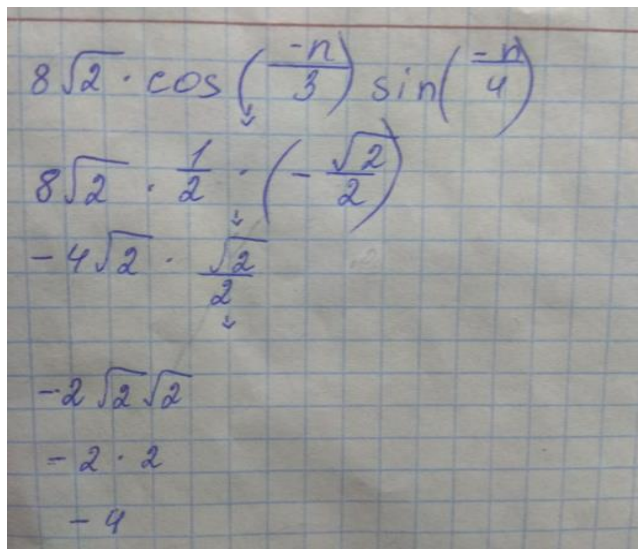 8√2 · cos(-π/3) sin(-π/4)
8√2 · 1/2 · (-√2/2)
-4√2 · √2/2
-2√2√2
-2 · 2
-4